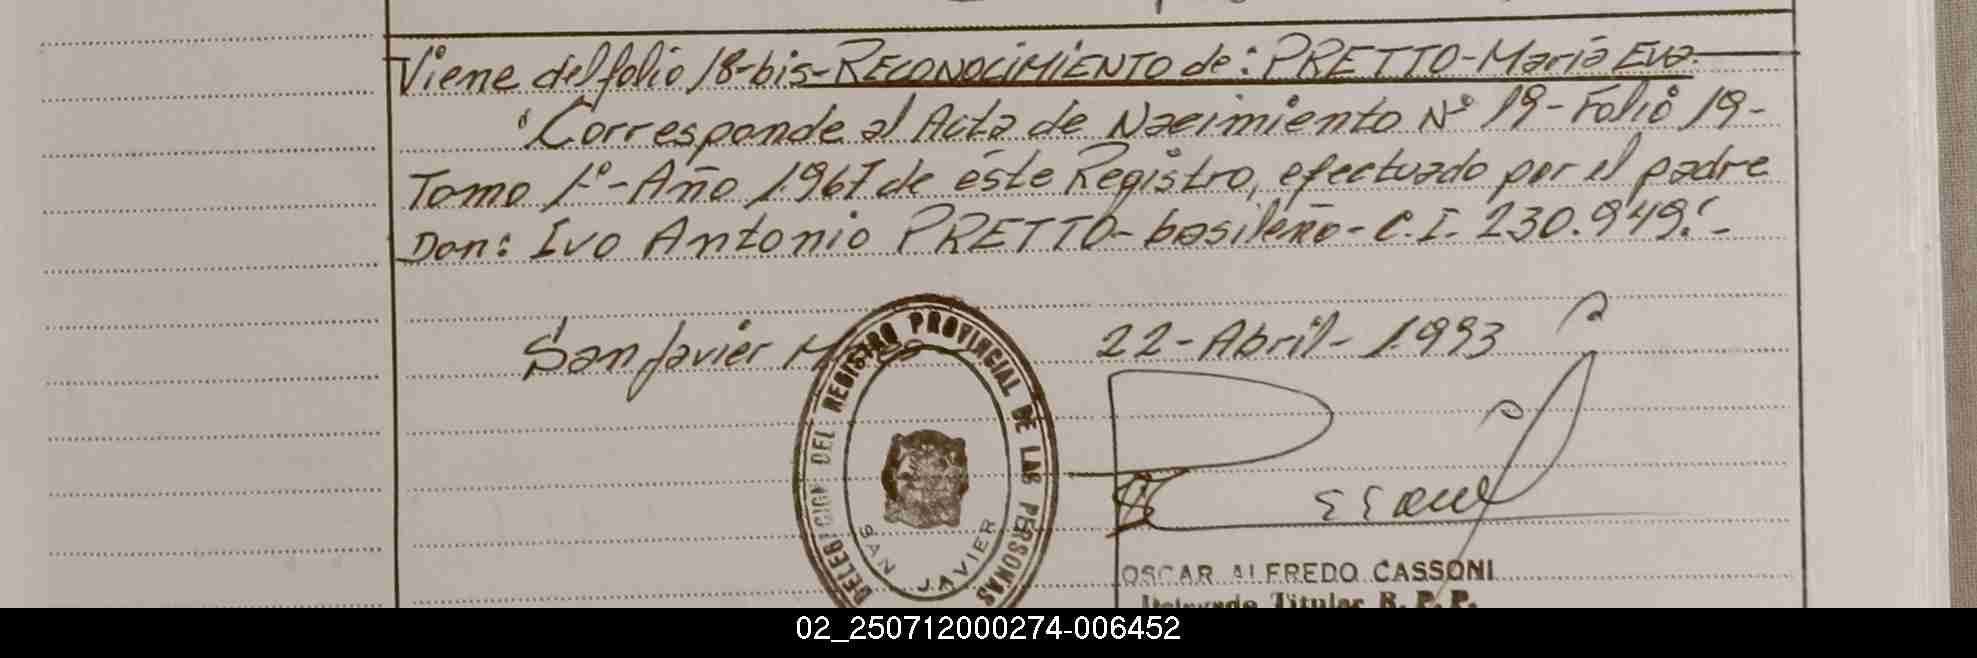 Viene del folio 18-bis-RECONOCIMIENTO de: PRETTO-María Eva.
Corresponde al Acta de Nacimiento Nº 19-Folio 19-
Tomo 1º-Año 1967 de éste Registro, efectuado por el padre
Don: Ivo Antonio PRETTO-basileño-C.I. 230.949.-
San Javier 22-Abril-1993
DELEGACION DEL REGISTRO PROVINCIAL DE LAS PERSONAS
SAN JAVIER
OSCAR ALFREDO CASSONI
Delegado Titular R. P. P.
02_250712000274-006452